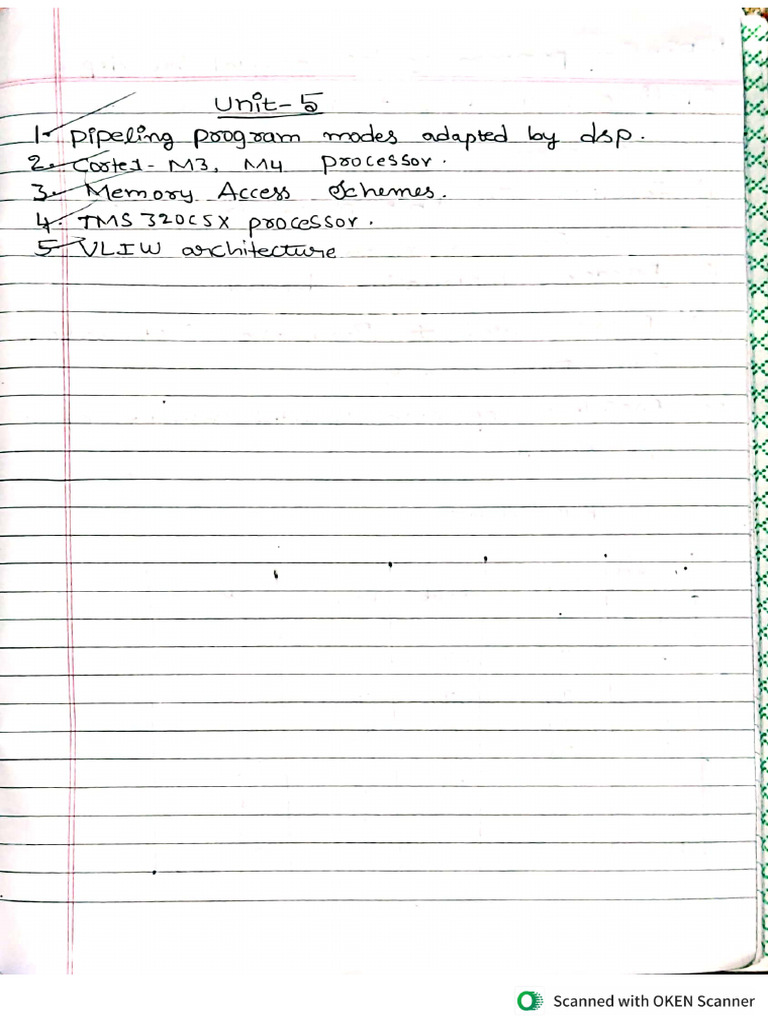 Unit-5
1. pipeling program modes adapted by dsp.
2. Cortex-M3, M4 processor.
3. Memory Access Schemes.
4. TMS320C5X processor.
5 VLIW architecture
Scanned with OKEN Scanner